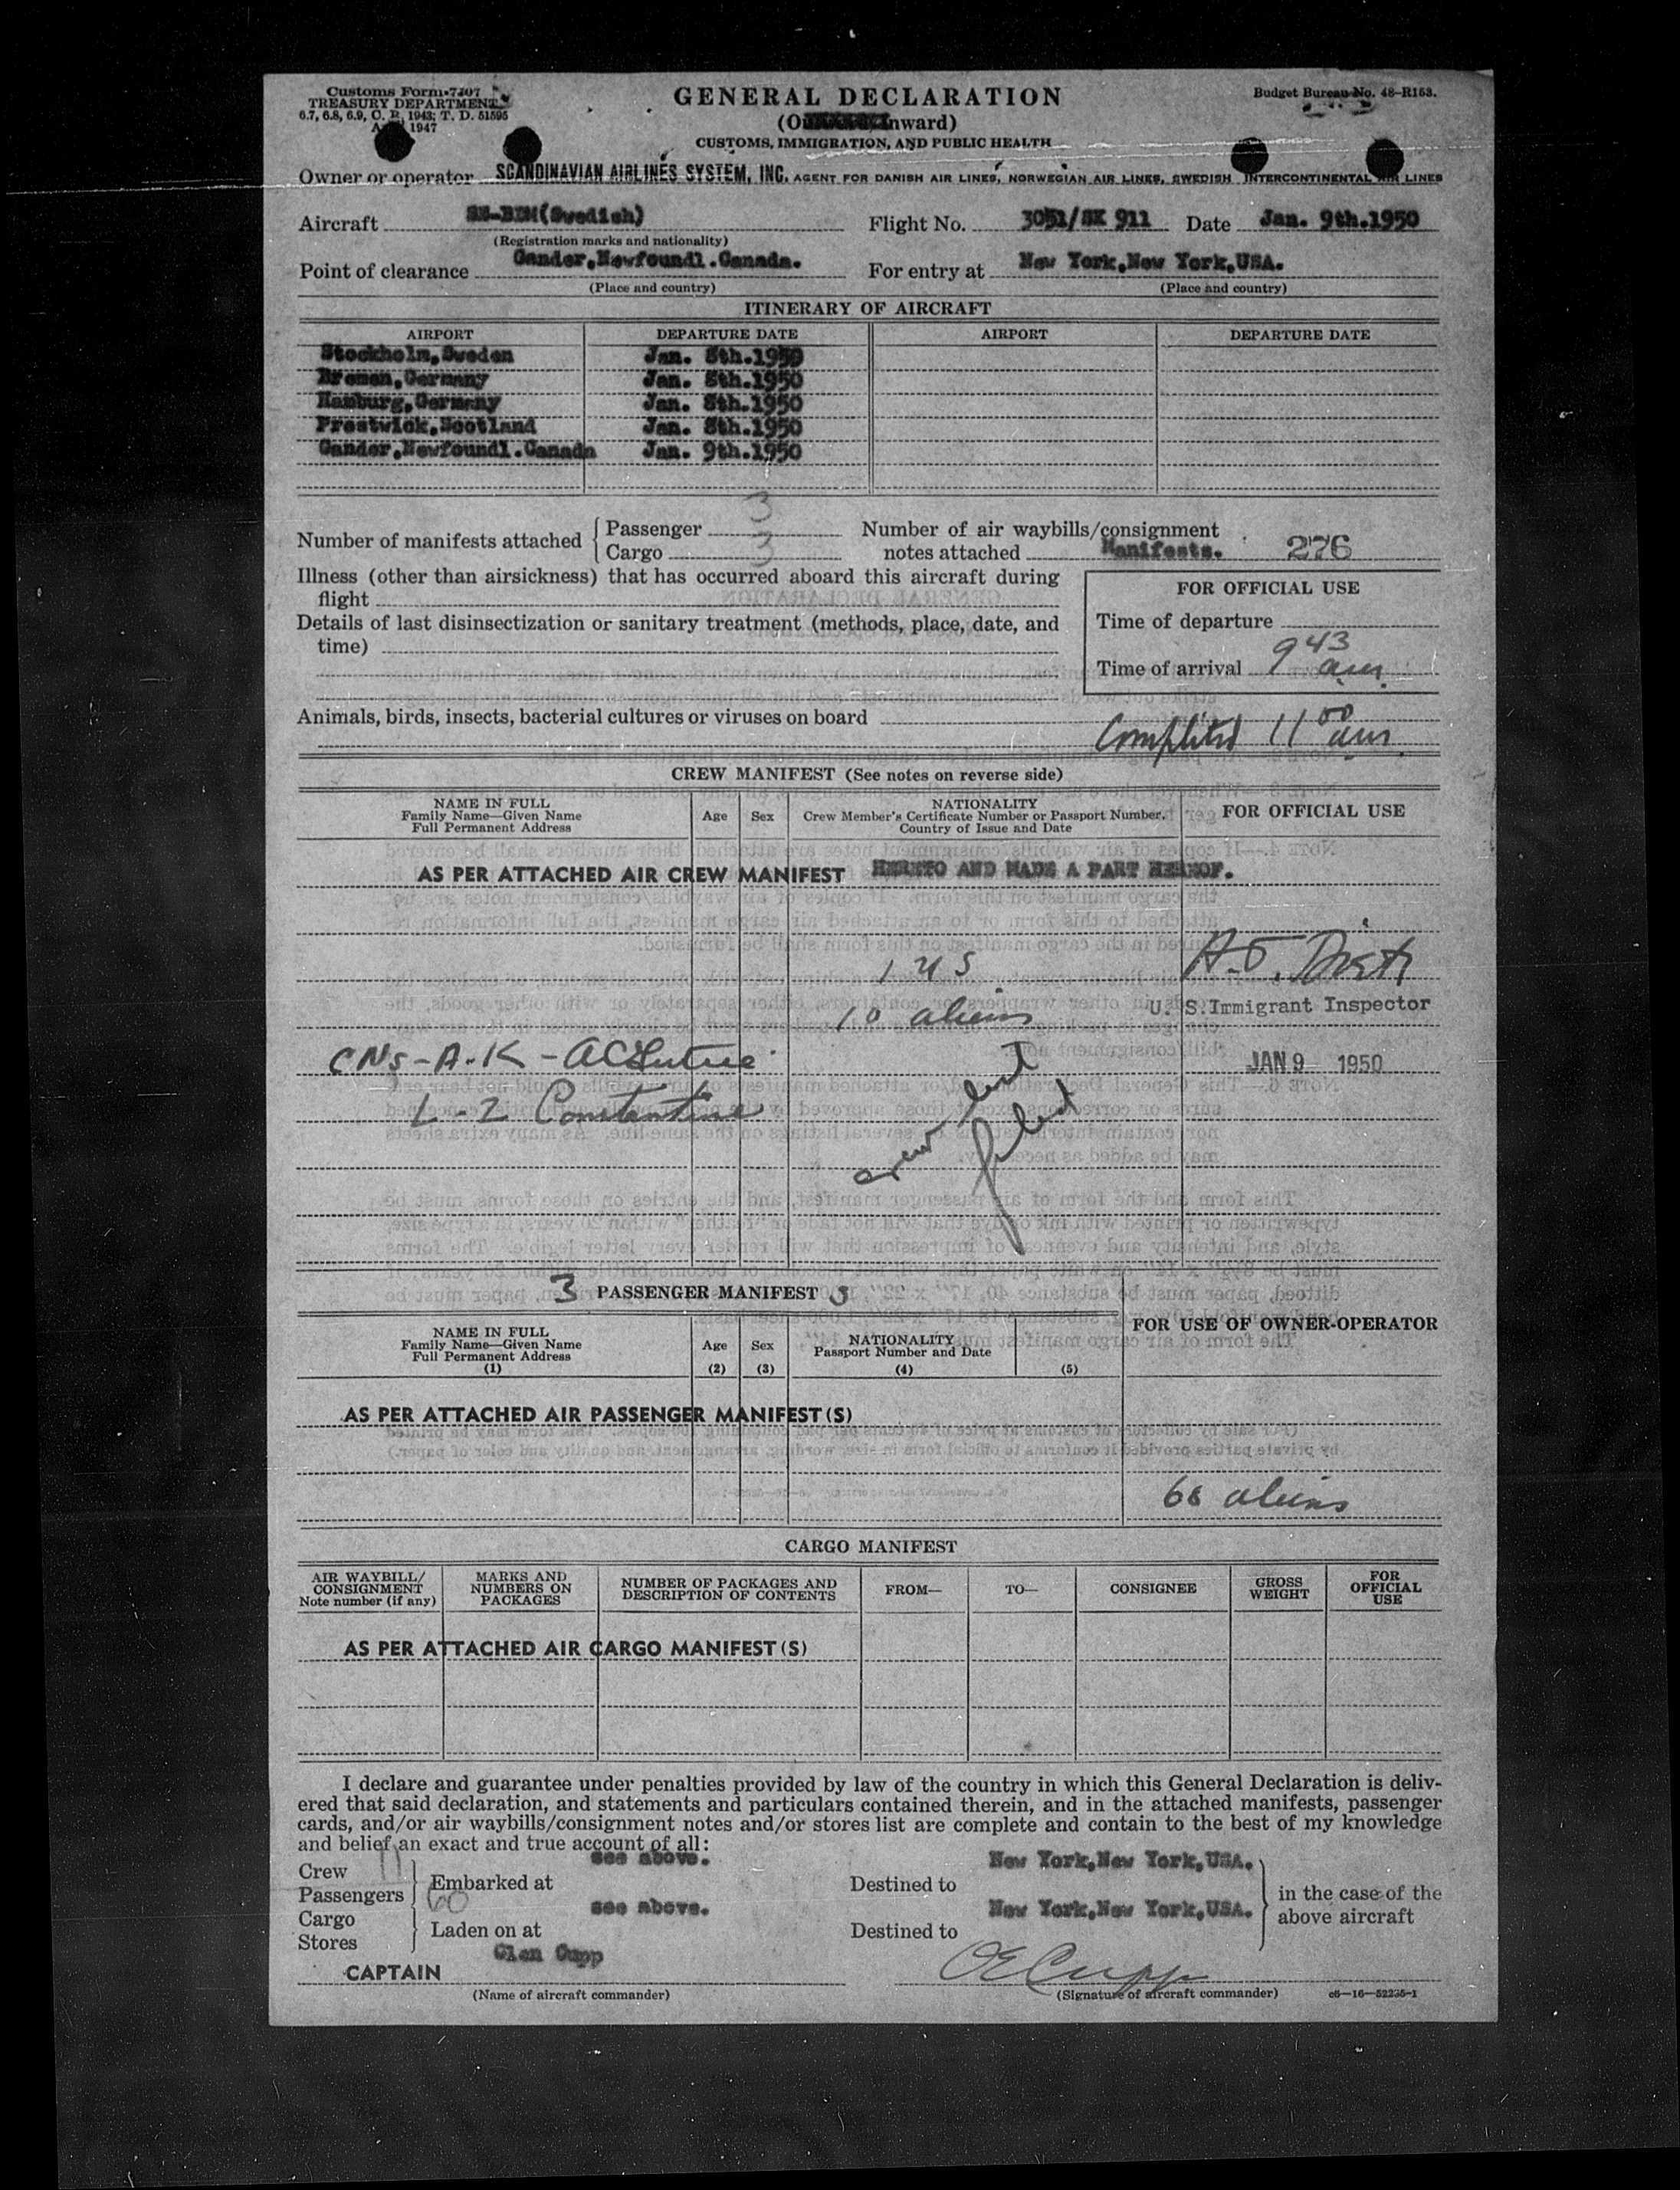 Customs Form 7507
TREASURY DEPARTMENT
6.7, 6.8, 6.9, C. R. 1943; T. D. 51595
1947
GENERAL DECLARATION
Inward)
CUSTOMS, IMMIGRATION, AND PUBLIC HEALTH
Budget Bureau No. 48-R153.
Owner or operator SCANDINAVIAN AIRLINES SYSTEM, INC. AGENT FOR DANISH AIR LINES, NORWEGIAN AIR LINES, SWEDISH INTERCONTINENTAL AIR LINES
Aircraft (Swedish) Flight No. 3051/SK 911 Date Jan. 9th.1950
(Registration marks and nationality)
Point of clearance Gander,Newfoundl.Canada. For entry at New York,New York,USA.
(Place and country) (Place and country)
ITINERARY OF AIRCRAFT
AIRPORT DEPARTURE DATE AIRPORT DEPARTURE DATE
Stockholm,Sweden Jan. 8th.1950
Bremen,Germany Jan. 8th.1950
Hamburg,Germany Jan. 8th.1950
Prestwick,Scotland Jan. 8th.1950
Gander,Newfoundl.Canada Jan. 9th.1950
Number of manifests attached { Passenger 3
Cargo 3
Number of air waybills/consignment
notes attached Manifests. 276
Illness (other than airsickness) that has occurred aboard this aircraft during
flight
Details of last disinsectization or sanitary treatment (methods, place, date, and
time)
FOR OFFICIAL USE
Time of departure
Time of arrival 9 43 am.
Animals, birds, insects, bacterial cultures or viruses on board
Completed 11 00 am.
CREW MANIFEST (See notes on reverse side)
NAME IN FULL
Family Name—Given Name
Full Permanent Address
Age
Sex
NATIONALITY
Crew Member's Certificate Number or Passport Number.
Country of Issue and Date
FOR OFFICIAL USE
AS PER ATTACHED AIR CREW MANIFEST HERETO AND MADE A PART HEREOF.
1 US
10 aliens
U. S. Immigrant Inspector
JAN 9 1950
CNS-A-K-
L-Z Constantine
crew list
filed
3 PASSENGER MANIFEST
NAME IN FULL
Family Name—Given Name
Full Permanent Address
(1)
Age
(2)
Sex
(3)
NATIONALITY
Passport Number and Date
(4)
(5)
FOR USE OF OWNER-OPERATOR
AS PER ATTACHED AIR PASSENGER MANIFEST(S)
aliens
CARGO MANIFEST
AIR WAYBILL/
CONSIGNMENT
Note number (if any)
MARKS AND
NUMBERS ON
PACKAGES
NUMBER OF PACKAGES AND
DESCRIPTION OF CONTENTS
FROM—
TO—
CONSIGNEE
GROSS
WEIGHT
FOR
OFFICIAL
USE
AS PER ATTACHED AIR CARGO MANIFEST(S)
I declare and guarantee under penalties provided by law of the country in which this General Declaration is deliv-
ered that said declaration, and statements and particulars contained therein, and in the attached manifests, passenger
cards, and/or air waybills/consignment notes and/or stores list are complete and contain to the best of my knowledge
and belief an exact and true account of all:
Crew 11
Passengers 60
Cargo
Stores
see above.
Embarked at
see above.
Laden on at
New York,New York,USA.
Destined to
New York,New York,USA.
Destined to
in the case of the
above aircraft
CAPTAIN Glen Cupp
(Name of aircraft commander)
(Signature of aircraft commander)
c6—16—52235-1